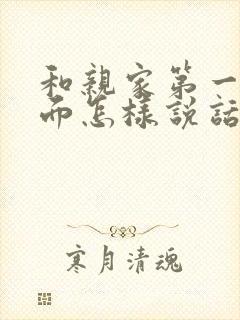 和親家第一
而怎樣説話
寒月清魂